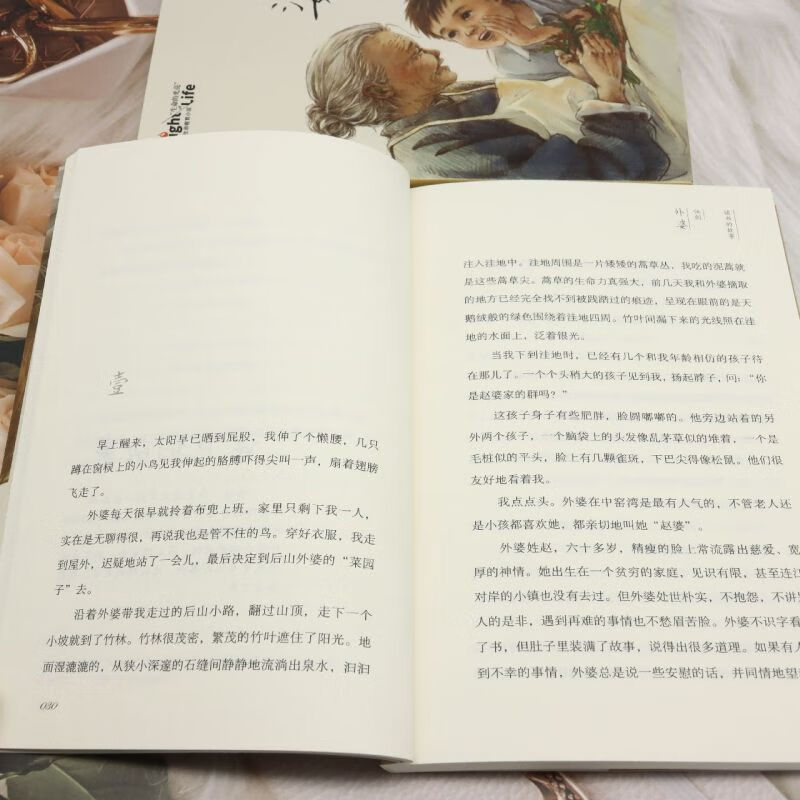 "生命的亮光"
ight
of
Life
壹
早上醒来，太阳早已晒到屁股，我伸了个懒腰，几只
蹲在窗棂上的小鸟见我伸起的胳膊吓得尖叫一声，扇着翅膀
飞走了。
外婆每天很早就拎着布兜上班，家里只剩下我一人，
实在是无聊得很，再说我也是管不住的鸟。穿好衣服，我走
到屋外，迟疑地站了一会儿，最后决定到后山外婆的“菜园
子”去。
沿着外婆带我走过的后山小路，翻过山顶，走下一个
小坡就到了竹林。竹林很茂密，繁茂的竹叶遮住了阳光。地
面湿漉漉的，从狭小深邃的石缝间静静地流淌出泉水，汩汩
030
外婆
读书的故事
注入洼地中。洼地周围是一片矮矮的蒿草丛，我吃的泥蒿就
是这些蒿草尖。蒿草的生命力真强大，前几天我和外婆摘取
的地方已经完全找不到被践踏过的痕迹，呈现在眼前的是天
鹅绒般的绿色围绕着洼地四周。竹叶间漏下来的光线照在洼
地的水面上，泛着银光。
当我下到洼地时，已经有几个和我年龄相仿的孩子待
在那儿了。一个个头稍大的孩子见到我，扬起脖子，问：“你
是赵婆家的群吗？”
这孩子身子有些肥胖，脸圆嘟嘟的。他旁边站着的另
外两个孩子，一个脑袋上的头发像乱茅草似的堆着，一个是
毛桩似的平头，脸上有几颗雀斑，下巴尖得像松鼠。他们很
友好地看着我。
我点点头。外婆在中窑湾是最有人气的，不管老人还
是小孩都喜欢她，都亲切地叫她“赵婆”。
外婆姓赵，六十多岁，精瘦的脸上常流露出慈爱、宽
厚的神情。她出生在一个贫穷的家庭，见识有限，甚至连江
对岸的小镇也没有去过。但外婆处世朴实，不抱怨，不讲别
人的是非，遇到再难的事情也不愁眉苦脸。外婆不识字看
了书，但肚子里装满了故事，说得出很多道理。如果有人
到不幸的事情，外婆总是说一些安慰的话，并同情地望